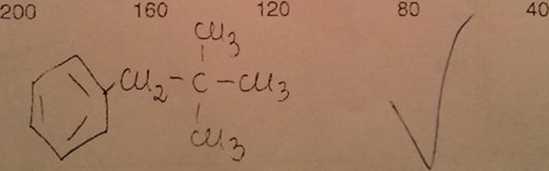 200 160 120 80 40
CH3
CH2-C-CH3
CH3